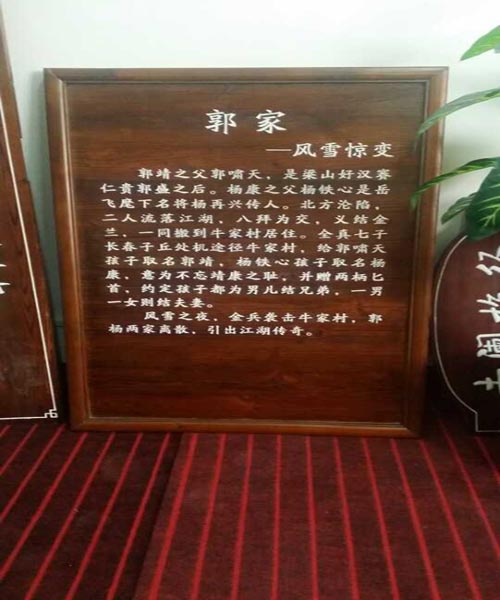 郭家
—风雪惊变
郭靖之父郭啸天，是梁山好汉赛
仁贵郭盛之后。杨康之父杨铁心是岳
飞麾下名将杨再兴传人。北方沦陷，
二人流落江湖，八拜为交，义结金
兰，一同搬到牛家村居住。全真七子
长春子丘处机途径牛家村，给郭啸天
孩子取名郭靖，杨铁心孩子取名杨
康，意为不忘靖康之耻，并赠两柄匕
首，约定孩子都为男儿结兄弟，一男
一女则结夫妻。
风雪之夜，金兵袭击牛家村，郭
杨两家离散，引出江湖传奇。